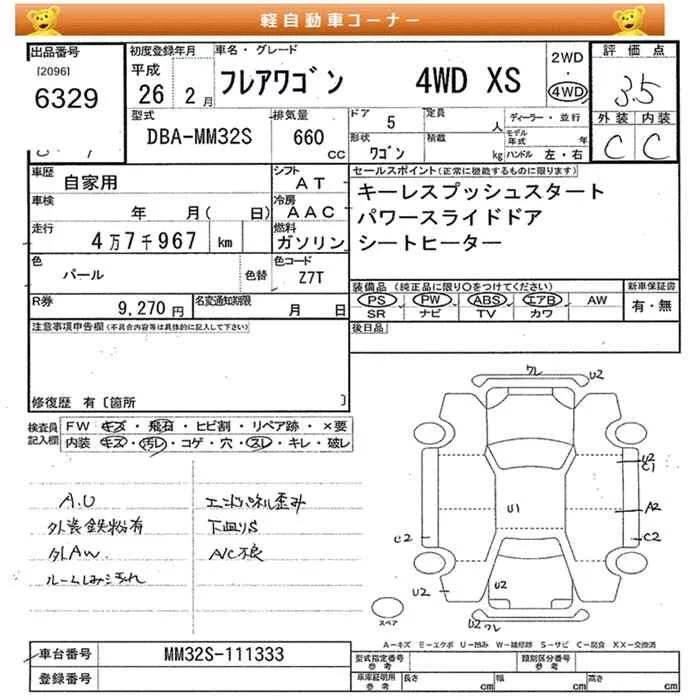 軽自動車コーナー
出品番号
[2096]
6329
初度登録年月
平成
26 2月
車名・グレード
フレアワゴン 4WD XS
2WD
・
4WD
評価点
3.5
外装 内装
C C
型式
DBA-MM32S
排気量
660
cc
ドア 5
定員 人
形状 ワゴン
積載 kg
ディーラー・並行
モデル年式 年
ハンドル 左・右
車歴
自家用
シフト
AT
車検
年 月( 日)
冷房
AAC
走行
4万7千967 km
燃料
ガソリン
色
パール
色替
色コード
Z7T
R券
9,270円
名変通知期限
月 日
セールスポイント(正常に機能するものに限ります)
キーレスプッシュスタート
パワースライドドア
シートヒーター
装備品(純正品に限り○をつけてください)
PS PW ABS エアB AW
SR ナビ TV カワ
新車保証書
有・無
後日品
注意事項申告欄(不具合内容等は具体的に記入して下さい)
修復歴 有〔箇所 〕
検査員
記入欄
FW キズ・飛石・ヒビ割・リペア跡・×要
内装 キズ・汚レ・コゲ・穴・スレ・キレ・破レ
A.U
外装鉄粉有
外AW
ルームしみ汚れ
エンドパネル歪み
下廻りS
A/C不良
ワレ U2
U2
C1
A2
C2
U1
C2
U2
U2
U2 ワレ
スペア
A=キズ E=エクボ U=凹み W=補修跡 S=サビ C=腐食 XX=交換済
車台番号
MM32S-111333
登録番号
型式指定番号
参考
類別区分番号
参考
車庫証明用
参考
長さ cm
幅 cm
高さ cm